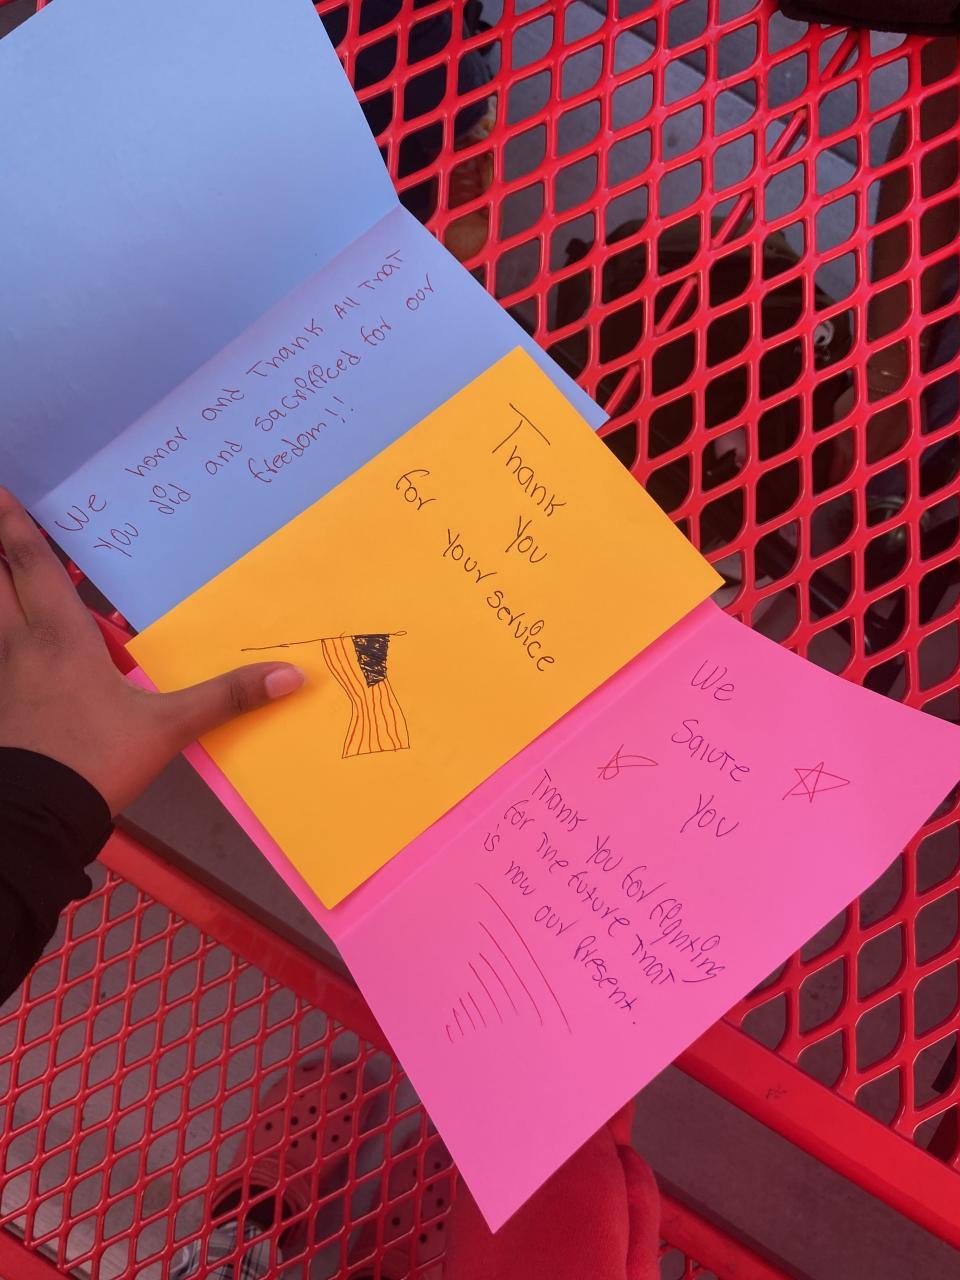 We honor and Thank All That
you did and sacrificed for our
freedom!!
Thank
you
for your service
We
Salute
you
Thank you for fighting
for the future that
is now our present.